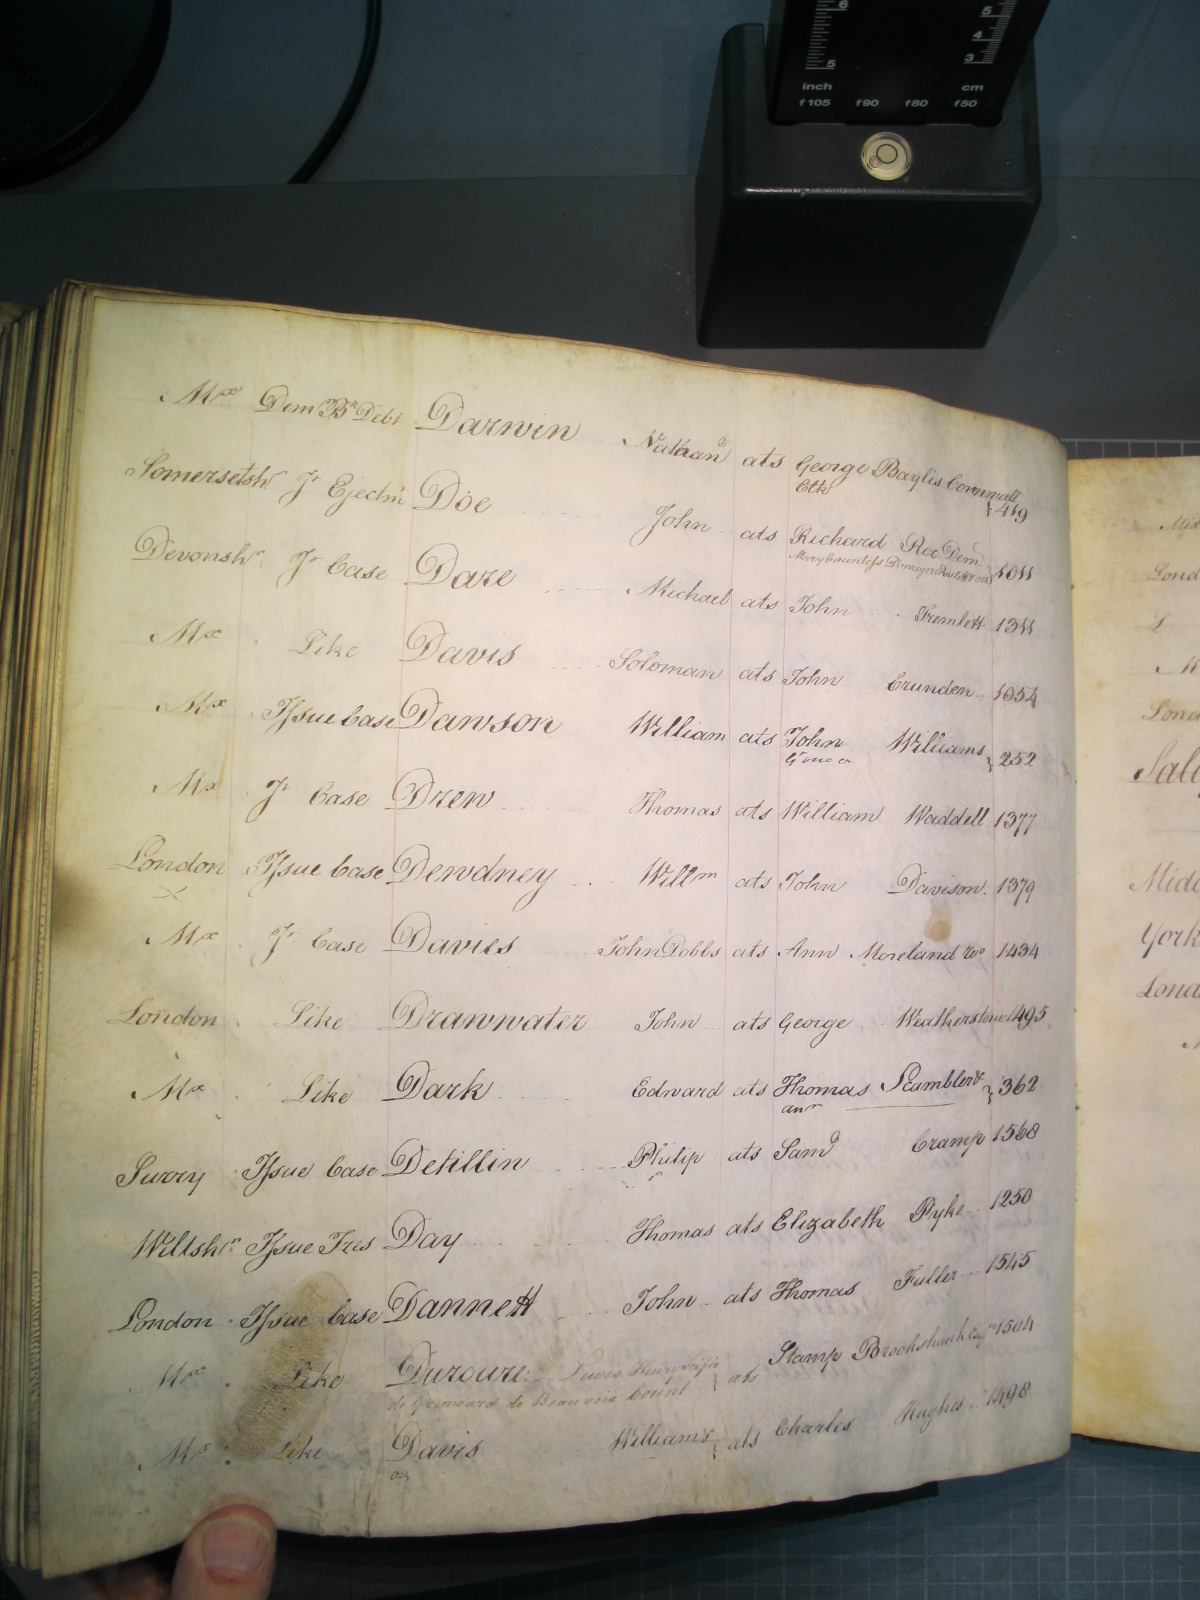 6 5
5 4
3
inch cm
f105 f90 f80 f50
PHILIPS
Mx Dem Br Debt Darwin Nathan ats George Baylis Cornwall
Clk } 419
Somersetshr Jt Ejectmt Doe John ats Richard Roe Dem
Mary Countess } 1011
Devonshr Jt Case Dare Michael ats John Tremlett 1311
Mx Like Davis Soloman ats John Crunden 1054
Mx Issue Case Dawson William ats John Williams
} 252
Mx Jt Case Drew Thomas ats William Waddell 1377
London Issue Case Dewdney Willm ats John Davison 1379
x
Mx Jt Case Davies John Dobbs ats Ann Moreland Wo 1434
London Like Drawwater John ats George Weatherstone 1495
Mx Like Dark Edward ats Thomas Scamblert
anr } 362
Surry Issue Case Detillin Philip ats Saml Cramp 1568
Wiltshr Issue Tres Day Thomas ats Elizabeth Pyke 1250
London Issue Case Dannett John ats Thomas Fuller 1545
Mx Like Duroure Lewis Henry } ats Stamp Brookshank Esqr 1504
de Grimoard de Beauvoir Count
Mx Like Davis Williams } ats Charles Hughes 1498
Lond
L
M
Lond
Midd
York
Lond